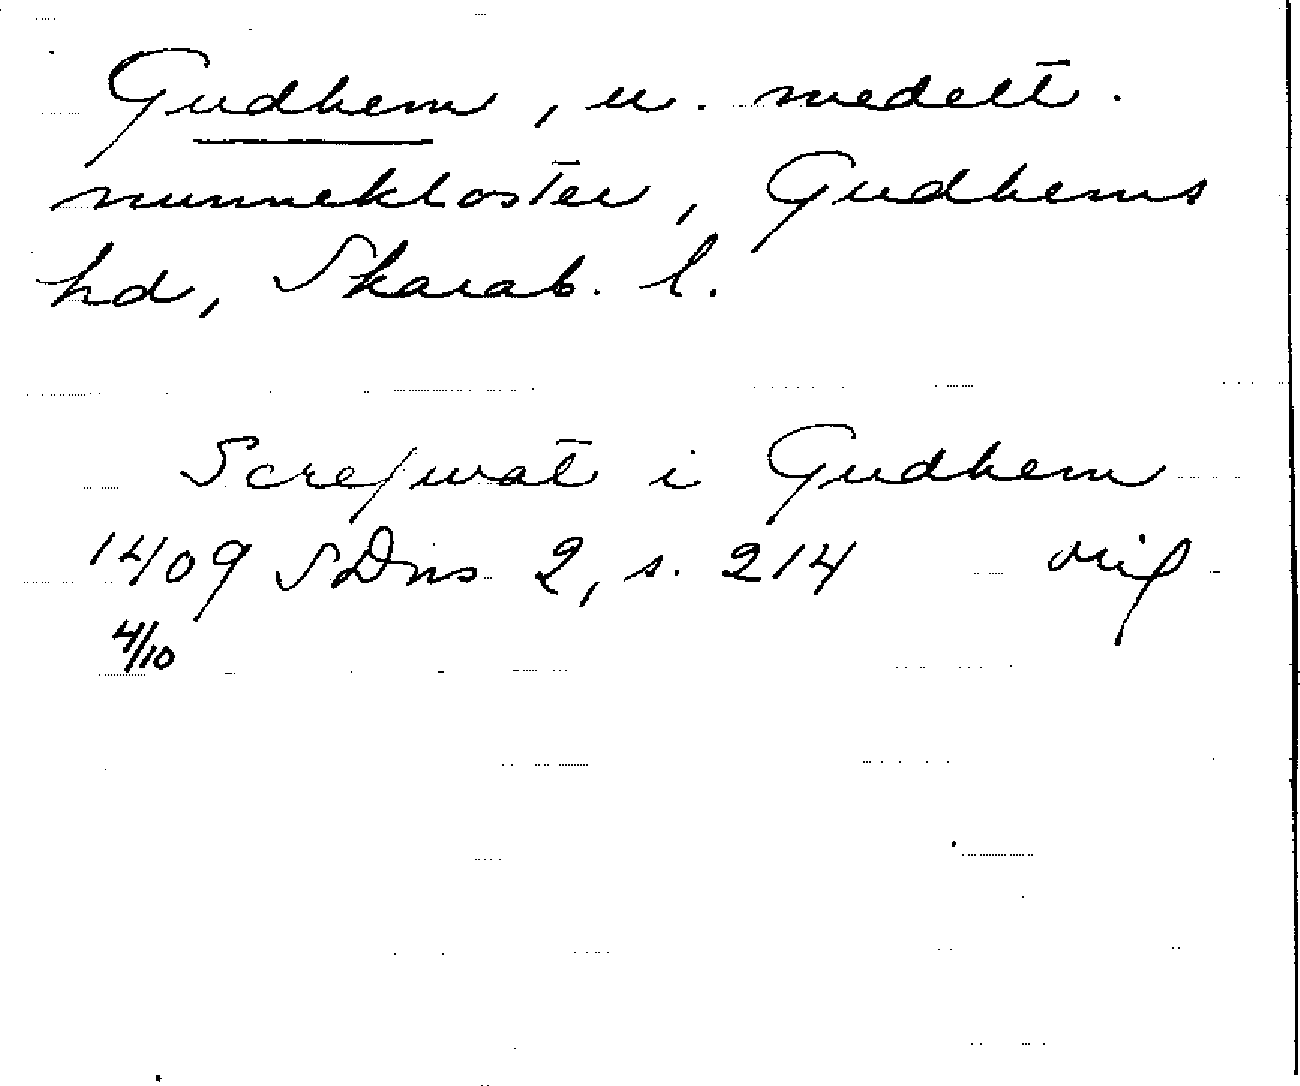 Gudhem, u. medelt.
nunnekloster, Gudhems
hd, Skarab. l.
Screfwat i Gudhem
1409 SDns 2, s. 214 orig
4/10